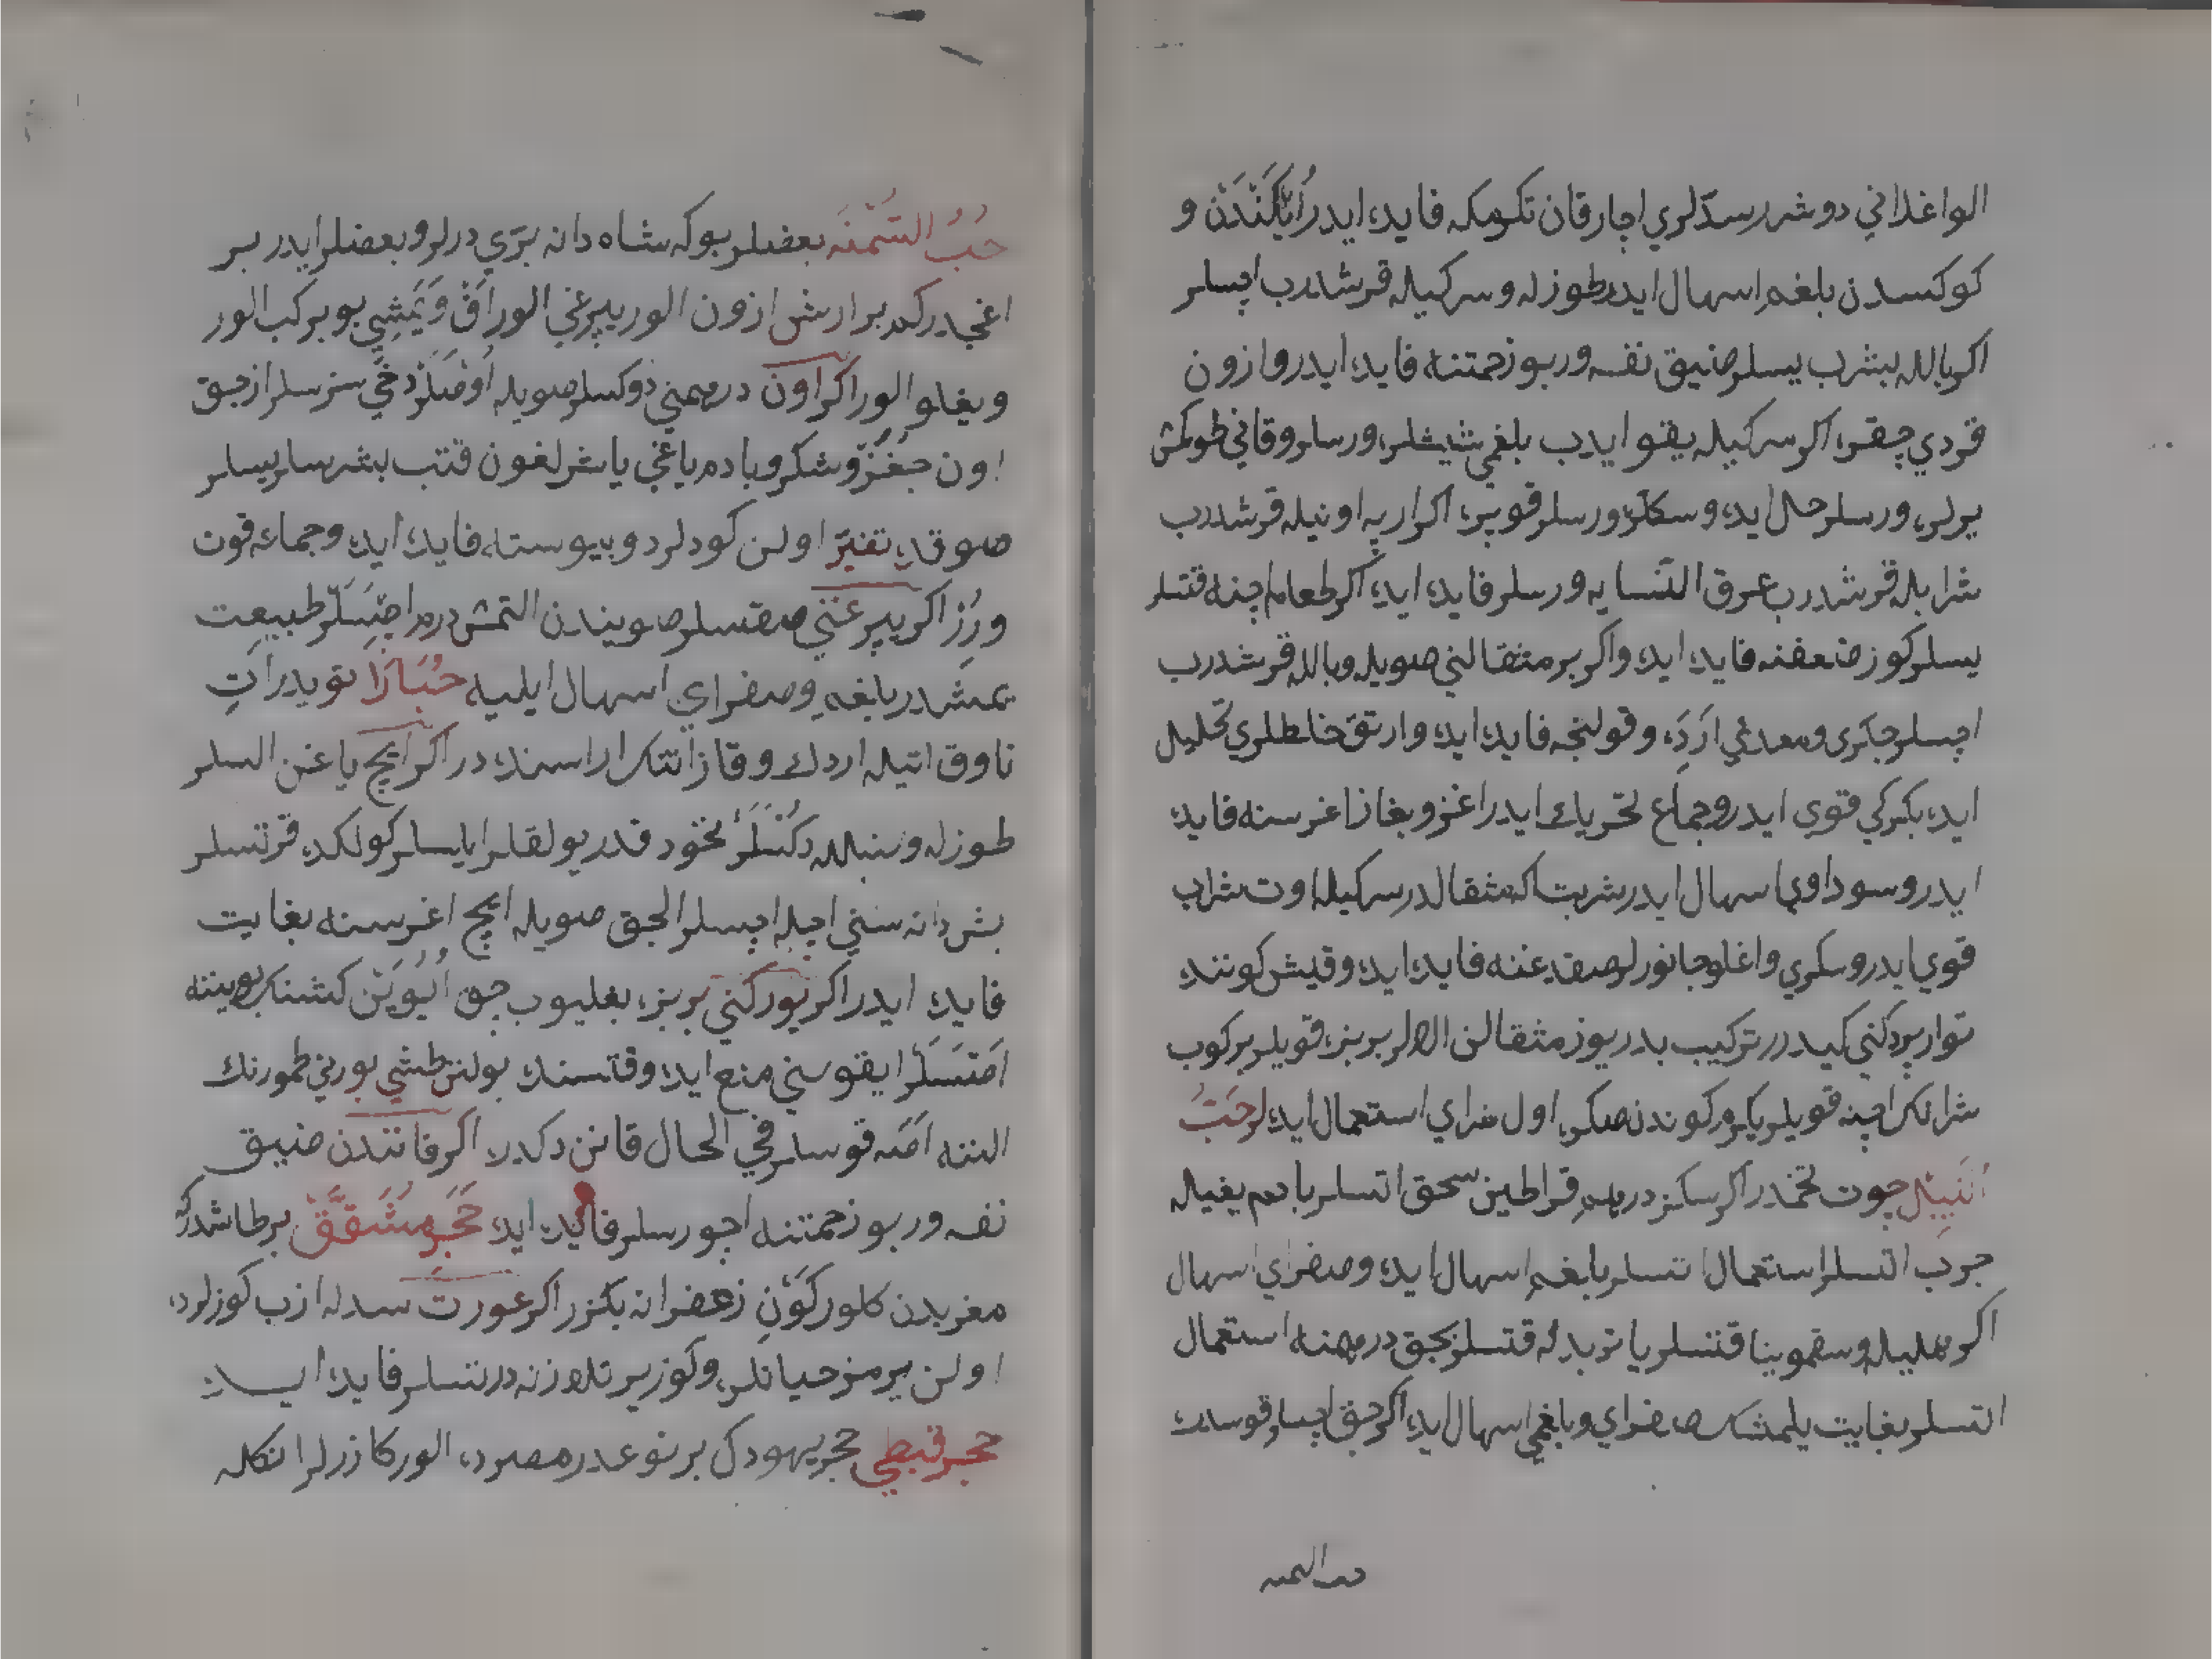 الواغلاني دوشرر سدّلري اچار قان تكومكه فايده ايدر اُيْكَنْدَنْ و
كوكسدن بلغم اسهال ايدر طوزله و سركيله قرشدرب اچسلر
اكر باله بشرب يسلر ضيق نفسه و ربو زحمتنه فايده ايدر و ازون
قردي چقره اكر سركيله يقو ايدب بلغمي شيشلره ورسلر و قاني طوكمش
يرلره ورسلر حل ايده و سكلره ورسلر قوپره اكر ارپه اونيله قرشدرب
شرابله قرشدرب عرق النّسايه ورسلر فايده ايده اكر طعام اچنه قتسلر
يسلر كوز ضعفنه فايده ايده و اكر بر مثقالني صويله و باله قرشدرب
اچسلر جكرى و معدهي اَرِدَه و قولنجه فايده ايده و ارتق خلطلري تحليل
ايده بكركي قوي ايدر و جماع تحريك ايدر اغز و بغاز اغرسنه فايده
ايدر و سوداوي اسهال ايدر شربت اكي مثقالدر سركيله اوت شراب
قوي ايدر و سكري و اغلو جانورلر صقدغنه فايده ايده و قيش كوننده
توار بردكني كيدرر تركيب بدر يوز مثقالن الالر بر بزه قويلر بر كوب
شرانك اچنه قويلر يكرمي كوندن صكره اول شرابي استعمال ايدهلر حَبُّ
النِّيلِ چوت تخمدر اكر سكز درهم قراطين سحق اتسلر بادم يغيله
جرب اتسلر استعمال اتسلر بلغم اسهال ايده و صفراي اسهال
اكر هليله و سقمونيا قتسلر يا تربدله قتسلر بجق درهمنه استعمال
اتسلر بغايت يلمشك صفراي و بلغمي اسهال ايده اكر چق اچسلر قوسدرت
حب السمنه
حَبُّ السُّمْنَه بعضلر بوكه شاه دانه بَرّي درلر و بعضلر ايدر بر
اغجدركه بر ارش ازون الور يپرغي الور اَقْ وَيَمِشِي بوبر كب الور
و يغلو الور اكر اون درهمني دوكسلر صويله اوْصَلَرْ دَخِّي سزسلر ازجق
اون جُغُنْر و شكر و بادم ياغي ياشرلغون قتب بشرسلر يسلر
صوقدر تفتر اولن كودلرده و پيوسته فايده ايده و جماعه قوت
ورُرْ اكر يپرغنني صقسلر صويندن التمش درم اچسَلَر طبيعت
يمشدر بلغم و صفراي اسهال ايليه حُبَارَا تويدر اَتِ
تاوق اتيله اردك و قاز اتنك اراسنده در اكر ايچ ياغن السلر
طوزله و سنبلله دُكْسَلَرْ نخود قدر يولقلر ايلسلر كولكده قرتسلر
بش دانه سني اچله اچسلر الجق صويله ايچ اغرسنه بغايت
فايده ايدر اكر يوركني بر بزه بغليوب چق اُيُويَنْ كشنك بوينه
اَصْسَلَرْ ايقوسني منع ايده و قتسنده بولنن طشي بورني طمورنك
التنه اَصَه قوسلر في الحال قانن دكدر اكر قانندن ضيق
نفسه و ربو زحمتنه اچورسلر فايده ايده حَجَرِ مُشَقَّقْ بر طاشدركه
مغربدن كلور كَوْنِ زعفرانه بكزر اكر عورت سدله ازب كوزلرده
اولن يرمز حياتلره و كوز يرتلازنه درتسلر فايده ايـده
حجر قبطي حجر يهودك بر نوعدر مصرده الور كازرلر انكله